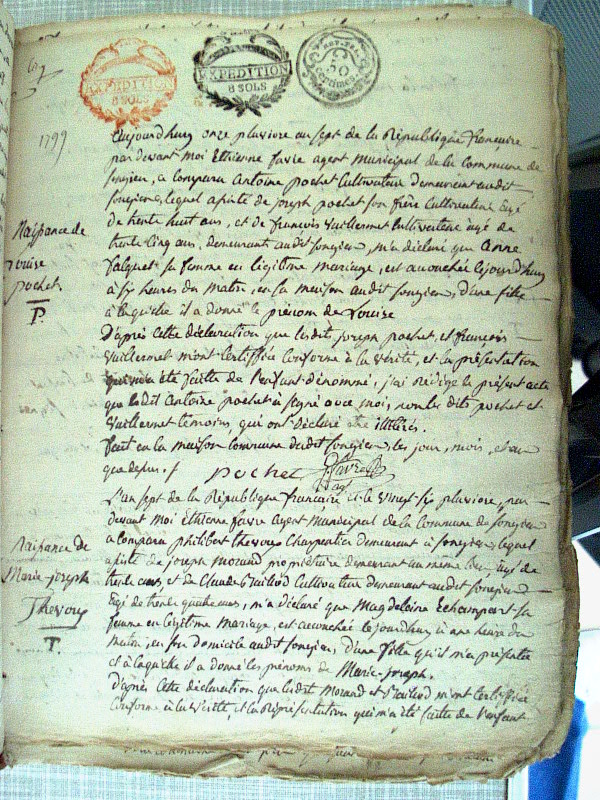 EXPEDITION
8 SOLS
EXPEDITION
8 SOLS
50
centimes
1799
Naissance de
Louise
pochet
Aujourd'huy onze pluviose an sept de la République francaise
par devant Moi Ethienne favre agent Municipal de la Commune de
songieu, a comparu Antoine pochet Cultivateur demeurant audit
songieu, lequel assisté de joseph pochet son frère Cultivateur agé
de trente huit ans, et de françois Vuillermet Cultivateur agé de
trente cinq ans, demeurant audit songieu, m'a déclaré que Anne
falquet sa femme en légitime mariage, est accouchée le jourd'huy
à six heures du matin, en sa maison audit songieu, d'une fille
à laquelle il a donné le prénom de Louise
D'après cette déclaration que lesdit joseph pochet, et françois
Vuillermet m'ont certiffiée conforme à la vérité, et la présentation
qui m'a été faitte de l'enfant dénommé, j'ai rédigé le présent acte
que ledit Antoine pochet a signé avec moi, non les dits pochet et
Vuillermet temoins, qui ont déclaré etre illitérés.
fait en la maison commune dudit songieu, les jour, mois, et an
que dessus. /
pochet
favre
agt
Naissance de
Marie-joseph
Thevoux
L'an sept de la République francaise et le vingt-six pluviose, par
devant Moi Ethienne favre agent municipal de la Commune de songieu
a comparu philibert Thevoux Charpentier demeurant à songieu, lequel
assisté de joseph Morand propriétaire demeurant au même lieu agé de
trente ans, et de Claude Cultivateur demeurant audit songieu
agé de trente quatre ans, m'a déclaré que Magdelaine Echampart sa
femme en légitime mariage, est accouchée le jourd'huy à une heure du
matin, en son domicile audit songieu, d'une fille qu'il m'a présentée
et à laquelle il a donné les prénoms de Marie-joseph.
D'après cette déclaration que lesdit Morand et m'ont certiffiée
conforme à la vérité, et la représentation qui m'a été faitte de l'enfant